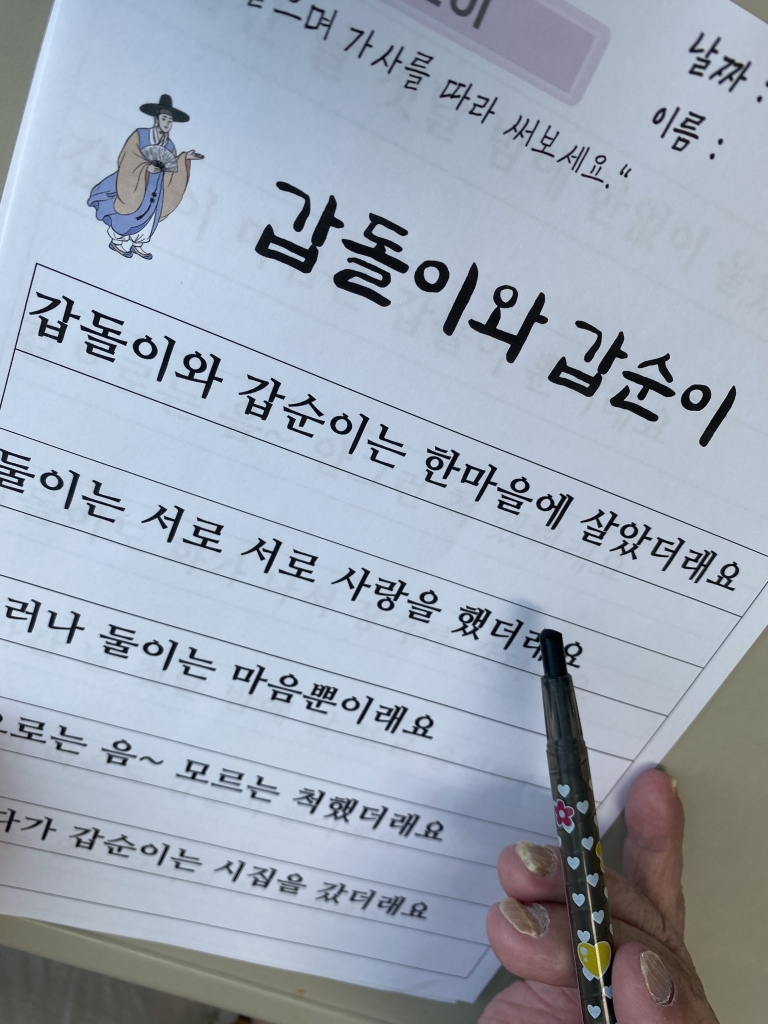 으며 가사를 따라 써보세요."
날짜 :
이름 :
갑돌이와 갑순이
갑돌이와 갑순이는 한마을에 살았더래요
둘이는 서로 서로 사랑을 했더래요
러나 둘이는 마음뿐이래요
으로는 음~ 모르는 척했더래요
다가 갑순이는 시집을 갔더래요